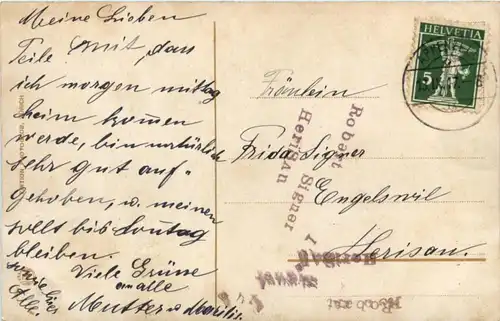 Meine Lieben
Teile mit, dass
ich morgen mittag
heim kommen
werde, bin natürlich
sehr gut auf-
gehoben, u. meinen
sollt bis Sonntag
bleiben.
Viele Grüsse
an alle
Mutter u.
HELVETIA
5
Fräulein
Frida Signer
Engelswil
Herisau.
Robart Signer
Herisau
Herisau
Robart